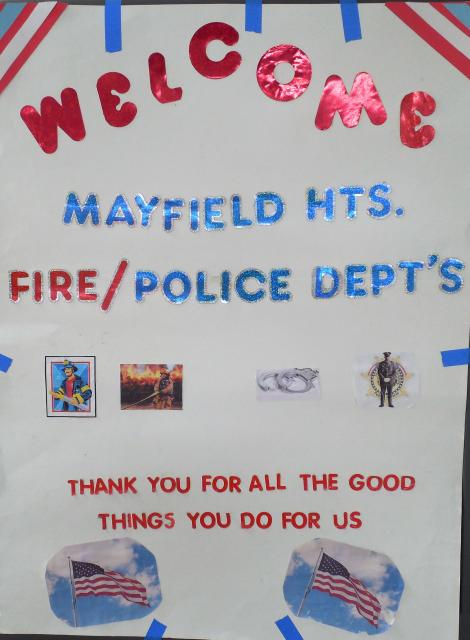 WELCOME
MAYFIELD HTS.
FIRE/POLICE DEPT'S
THANK YOU FOR ALL THE GOOD
THINGS YOU DO FOR US